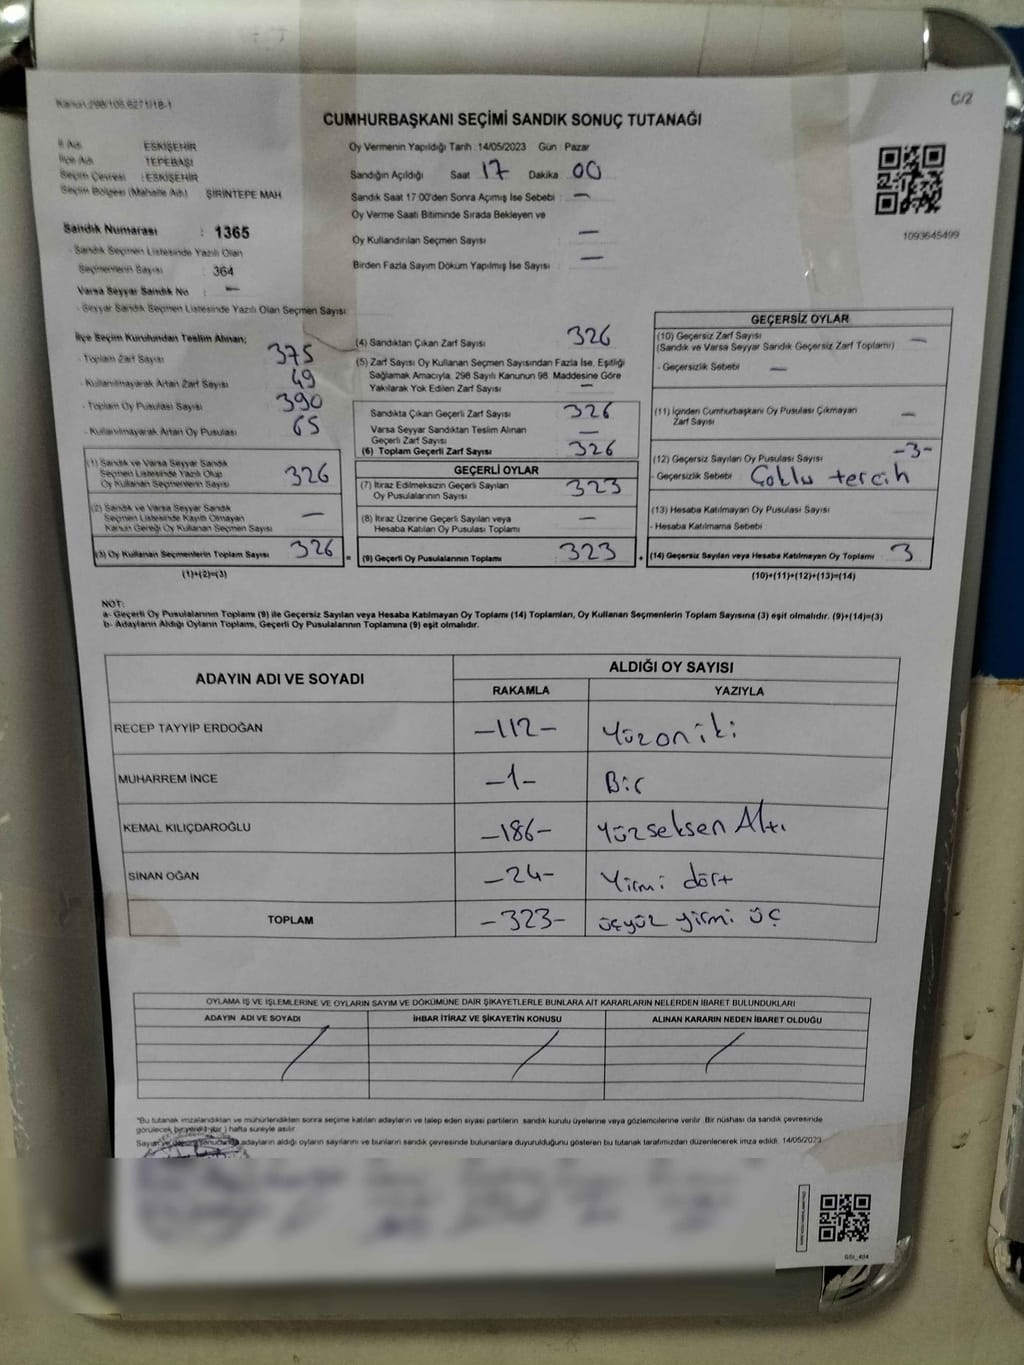 Kanun:298/105.6271/18-1
C/2
CUMHURBAŞKANI SEÇİMİ SANDIK SONUÇ TUTANAĞI
İl Adı ESKİŞEHİR
İlçe Adı TEPEBAŞI
Seçim Çevresi : ESKİŞEHİR
Seçim Bölgesi (Mahalle Adı) ŞİRİNTEPE MAH
Sandık Numarası : 1365
- Sandık Seçmen Listesinde Yazılı Olan
Seçmenlerin Sayısı 364
Varsa Seyyar Sandık No : —
- Seyyar Sandık Seçmen Listesinde Yazılı Olan Seçmen Sayısı
Oy Vermenin Yapıldığı Tarih :14/05/2023 Gün : Pazar
Sandığın Açıldığı Saat 17 Dakika 00
Sandık Saat 17:00'den Sonra Açımış İse Sebebi : —
Oy Verme Saati Bitiminde Sırada Bekleyen ve
Oy Kullandırılan Seçmen Sayısı —
Birden Fazla Sayım Döküm Yapılmış İse Sayısı —
1093645499
İlçe Seçim Kurulundan Teslim Alınan;
- Toplam Zarf Sayısı 375
- Kullanılmayarak Artan Zarf Sayısı 49
- Toplam Oy Pusulası Sayısı 390
- Kullanılmayarak Artan Oy Pusulası 65
(1) Sandık ve Varsa Seyyar Sandık
Seçmen Listesinde Yazılı Olup
Oy Kullanan Seçmenlerin Sayısı 326
(2) Sandık ve Varsa Seyyar Sandık
Seçmen Listesinde Kayıtlı Olmayan
Kanun Gereği Oy Kullanan Seçmen Sayısı —
(3) Oy Kullanan Seçmenlerin Toplam Sayısı 326 =
(1)+(2)=(3)
(4) Sandıktan Çıkan Zarf Sayısı 326
(5) Zarf Sayısı Oy Kullanan Seçmen Sayısından Fazla İse, Eşitliği
Sağlamak Amacıyla, 298 Sayılı Kanunun 98. Maddesine Göre
Yakılarak Yok Edilen Zarf Sayısı —
Sandıkta Çıkan Geçerli Zarf Sayısı 326
Varsa Seyyar Sandıktan Teslim Alınan
Geçerli Zarf Sayısı —
(6) Toplam Geçerli Zarf Sayısı 326
GEÇERLİ OYLAR
(7) İtiraz Edilmeksizin Geçerli Sayılan
Oy Pusulalarının Sayısı 323
(8) İtiraz Üzerine Geçerli Sayılan veya
Hesaba Katılan Oy Pusulası Toplamı —
(9) Geçerli Oy Pusulalarının Toplamı 323 +
GEÇERSİZ OYLAR
(10) Geçersiz Zarf Sayısı
(Sandık ve Varsa Seyyar Sandık Geçersiz Zarf Toplamı) —
- Geçersizlik Sebebi —
(11) İçinden Cumhurbaşkanı Oy Pusulası Çıkmayan
Zarf Sayısı —
(12) Geçersiz Sayılan Oy Pusulası Sayısı -3-
- Geçersizlik Sebebi Çoklu tercih
(13) Hesaba Katılmayan Oy Pusulası Sayısı
- Hesaba Katılmama Sebebi
(14) Geçersiz Sayılan veya Hesaba Katılmayan Oy Toplamı 3
(10)+(11)+(12)+(13)=(14)
NOT:
a- Geçerli Oy Pusulalarının Toplamı (9) ile Geçersiz Sayılan veya Hesaba Katılmayan Oy Toplamı (14) Toplamları, Oy Kullanan Seçmenlerin Toplam Sayısına (3) eşit olmalıdır. (9)+(14)=(3)
b- Adayların Aldığı Oyların Toplamı, Geçerli Oy Pusulalarının Toplamına (9) eşit olmalıdır.
ADAYIN ADI VE SOYADI
ALDIĞI OY SAYISI
RAKAMLA YAZIYLA
RECEP TAYYİP ERDOĞAN -112- Yüzoniki
MUHARREM İNCE -1- Bir
KEMAL KILIÇDAROĞLU -186- Yüzseksen Altı
SİNAN OĞAN -24- Yirmi dört
TOPLAM -323- üçyüz yirmi üç
OYLAMA İŞ VE İŞLEMLERİNE VE OYLARIN SAYIM VE DÖKÜMÜNE DAİR ŞİKAYETLERLE BUNLARA AİT KARARLARIN NELERDEN İBARET BULUNDUKLARI
ADAYIN ADI VE SOYADI İHBAR İTİRAZ VE ŞİKAYETİN KONUSU ALINAN KARARIN NEDEN İBARET OLDUĞU
*Bu tutanak imzalandıktan ve mühürlendikten sonra seçime katılan adayların ve talep eden siyasi partilerin sandık kurulu üyelerine veya gözlemcilerine verilir. Bir nüshası da sandık çevresinde
görülecek bir yere 1 (bir) hafta süreyle asılır
Sayım ve döküm sonucunda adayların aldığı oyların sayılarını ve bunların sandık çevresinde bulunanlara duyurulduğunu gösteren bu tutanak tarafımızdan düzenlenerek imza edildi. 14/05/2023
GSI_404